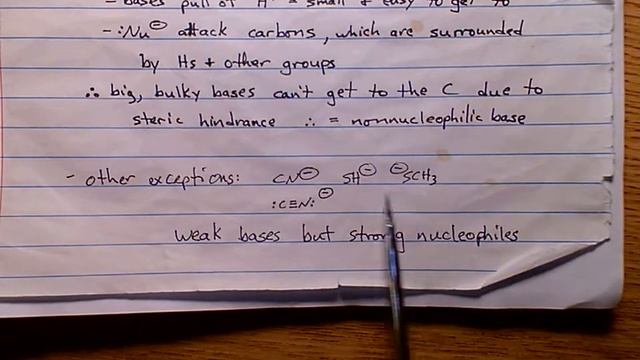 - bases pull off H⁺ = small & easy to get to
- :Nu⊖ attack carbons, which are surrounded
by Hs + other groups
∴ big, bulky bases can't get to the C due to
steric hindrance ∴ = nonnucleophilic base
- other exceptions: CN⊖ SH⊖ ⊖SCH₃
:C≡N:⊖
weak bases but strong nucleophiles